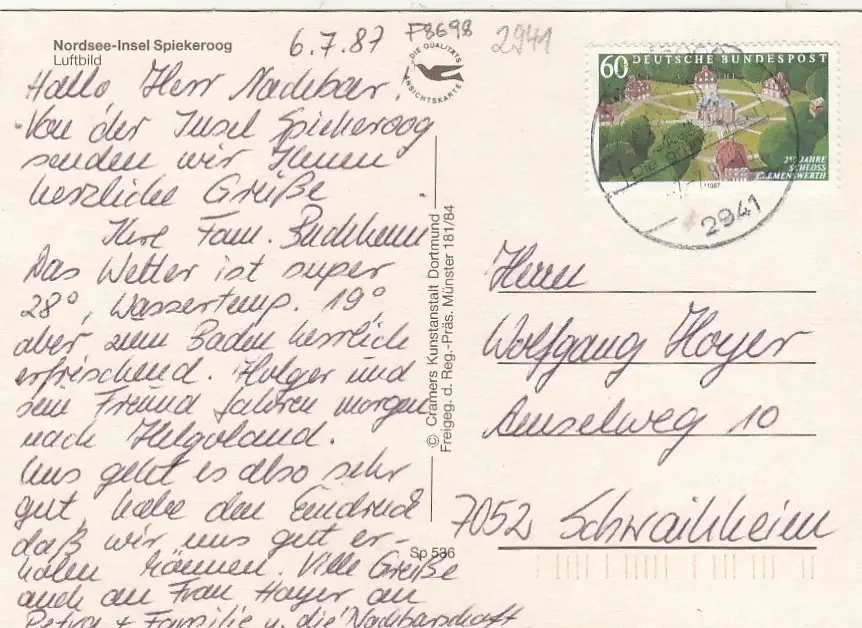 Nordsee-Insel Spiekeroog
Luftbild
6.7.87
F8698
2941
DIE QUALITÄTS
ANSICHTSKARTE
Hallo, Herr Nachbar.
Von der Insel Spiekeroog
senden wir Ihnen
herzliche Grüße
Ihre Fam.
Das Wetter ist super
28°, Wassertemp. 19°
aber zum Baden herrlich
erfrischend. Holger und
sein Freund fahren morgen
nach Helgoland.
Uns geht es also sehr
gut, habe den Eindruck
daß wir uns gut er-
holen können. Viele Grüße
auch an Frau Hoyer an
Petra + Familie u. die Nachbarschaft
© Cramers Kunstanstalt Dortmund
Freigeg. d. Reg.-Präs. Münster 181/84
Sp 536
60 DEUTSCHE BUNDESPOST
250 JAHRE
SCHLOSS
CLEMENSWERTH
1987
2941
Herrn
Wolfgang Hoyer
Amselweg 10
7052 Schwaikheim